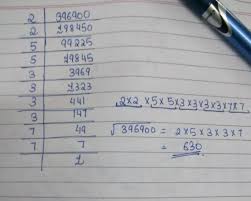 2 | 396900
2 | 198450
5 | 99225
5 | 19845
3 | 3969
3 | 1323
3 | 441
3 | 147
7 | 49
7 | 7
1
2×2×5×5×3×3×3×3×7×7
√396900 = 2×5×3×3×7
= 630